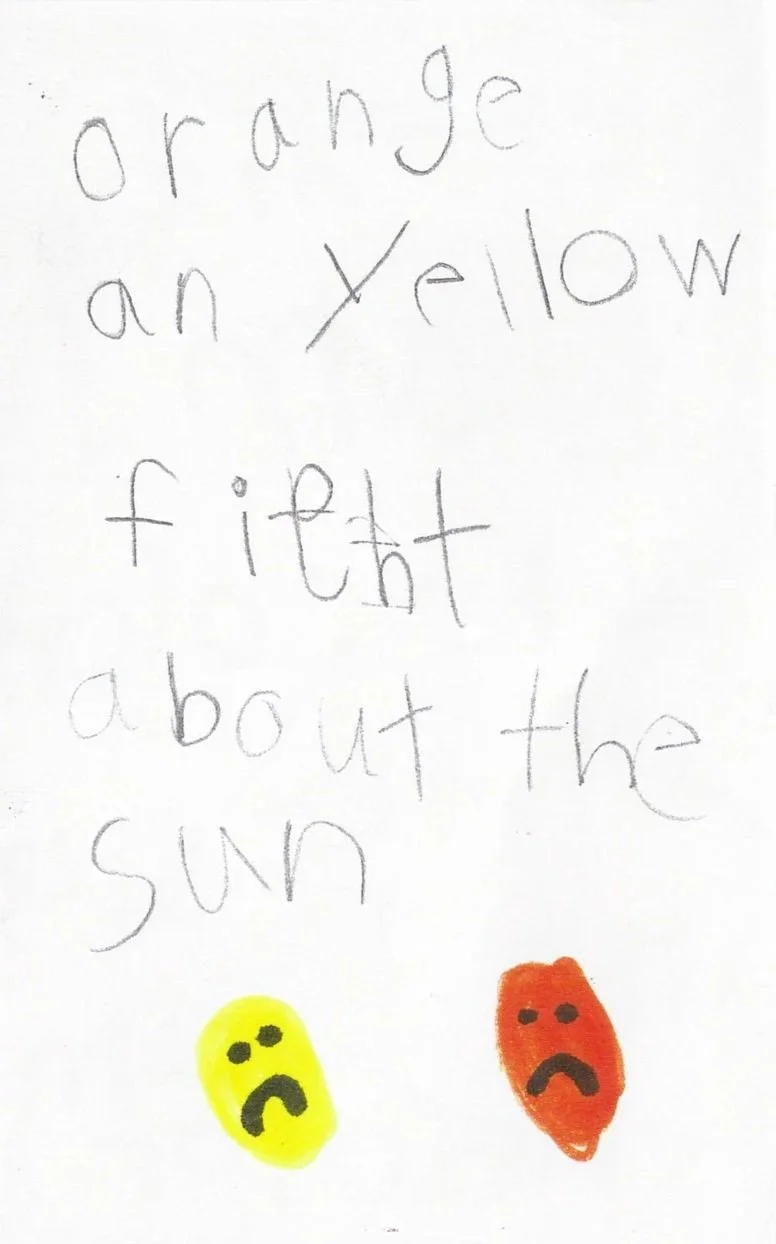 orange
an yellow
fight
about the
sun